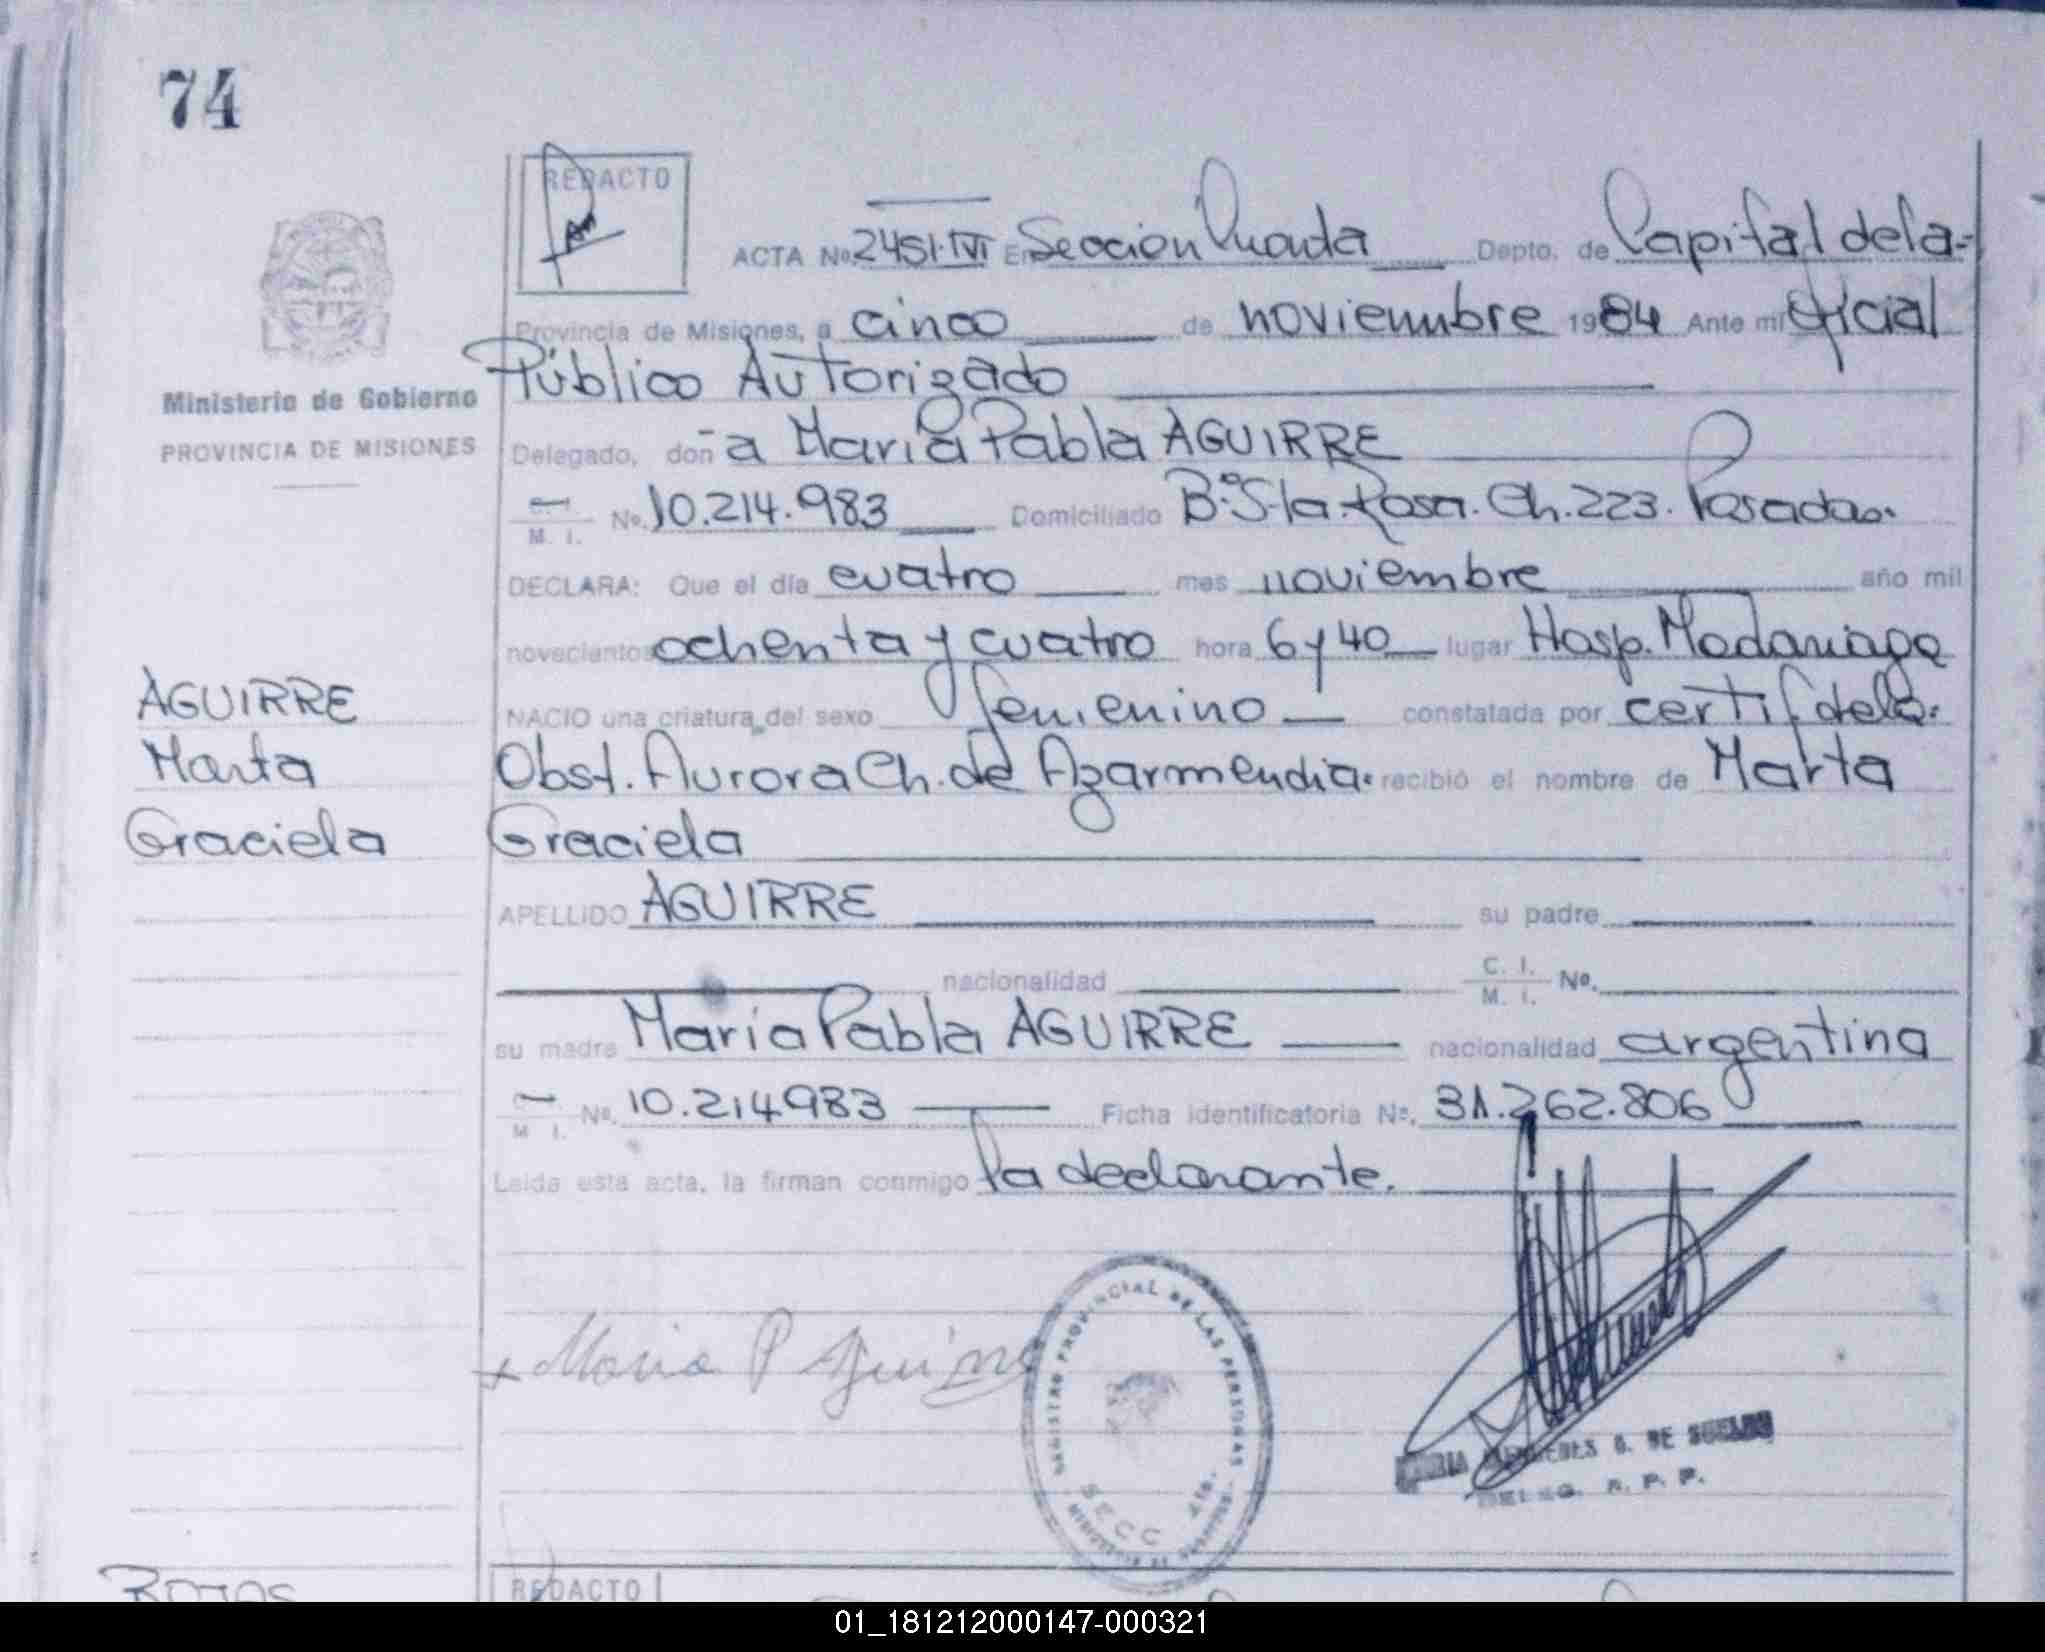 74
REDACTO
ACTA Nº 2451·IVI En Sección Cuarta Depto. de Capital de la-
Provincia de Misiones, a cinco de noviembre 1984 Ante mi Oficial
Público Autorizado
Ministerio de Gobierno
PROVINCIA DE MISIONES
Delegado, doñ a María Pabla AGUIRRE
C. I. M. I. No. 10.214.983 Domiciliado Bº Sta. Rosa. Ch. 223. Posadas.
DECLARA: Que el día cuatro mes noviembre año mil
novecientos ochenta y cuatro hora 6 y 40 lugar Hosp. Madariaga
NACIO una criatura del sexo femenino constatada por certif de la
Obst. Aurora Ch. de Azarmendia. recibió el nombre de Marta
Graciela
AGUIRRE
Marta
Graciela
APELLIDO AGUIRRE su padre
nacionalidad C. I. M. I. Nº.
su madre María Pabla AGUIRRE nacionalidad argentina
M I. Nº. 10.214983 Ficha identificatoria Nº. 31.262.806
Leida esta acta, la firman conmigo la declarante.
x Maria P Aguirre
REGISTRO PROVINCIAL DE LAS PERSONAS
SECC
MARIA MERCEDES G. DE SUELDO
DELEG. R. P. P.
ROJAS
REDACTO
01_181212000147-000321